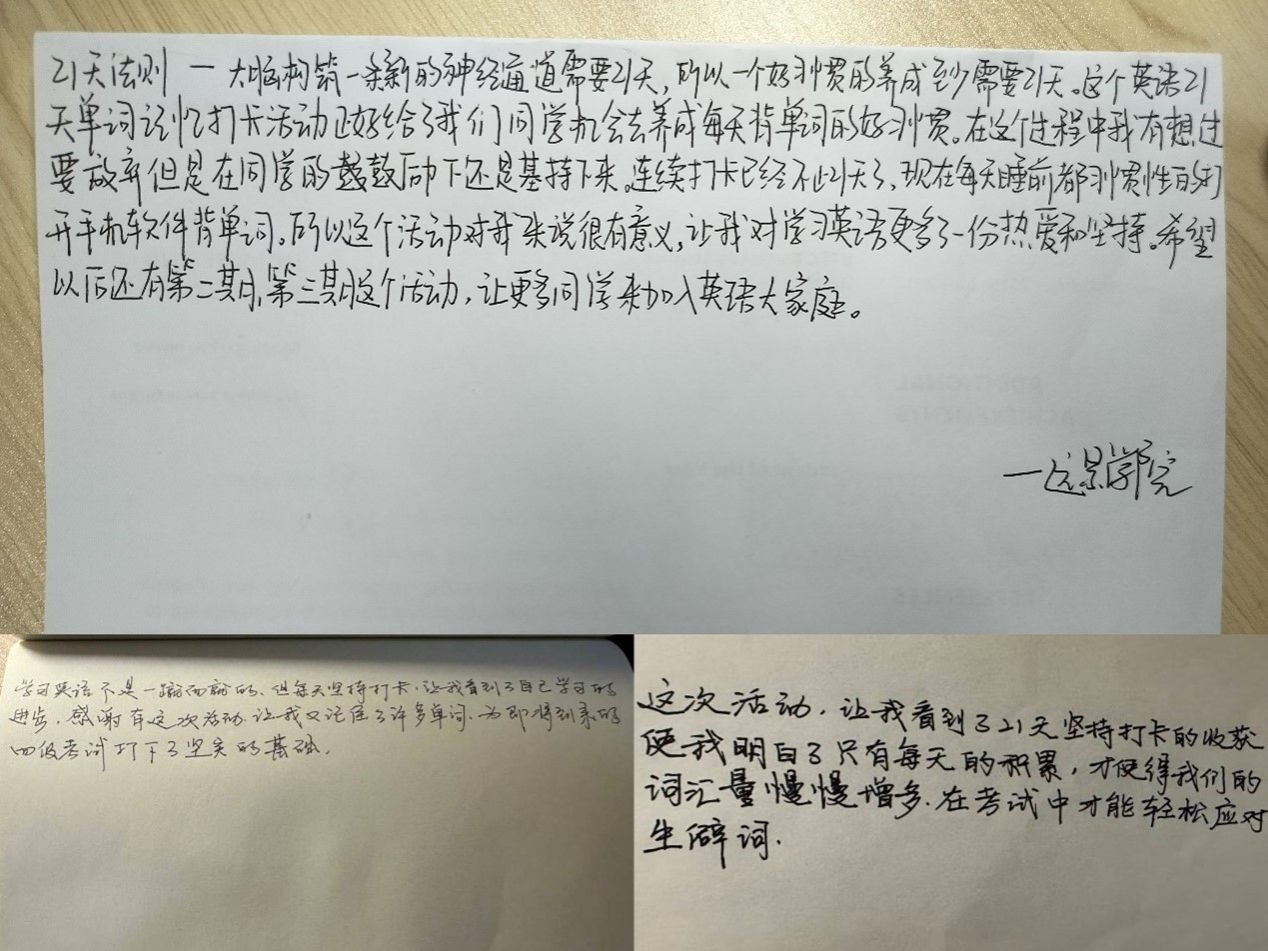 21天法则 一 大脑构筑一条新的神经通道需要21天,所以一个好习惯的养成至少需要21天。这个英语21
天单词记忆打卡活动正好给了我们同学机会去养成每天背单词的好习惯。在这个过程中我有想过
要放弃但是在同学的鼓励下还是坚持下来。连续打卡已经不止21天了,现在每天睡前都习惯性的打
开手机软件背单词。所以这个活动对我来说很有意义,让我对学习英语更多了一份热爱和坚持。希望
以后还有第二期,第三期这个活动,让更多同学来加入英语大家庭。
一远景学院
学习英语不是一蹴而就的、但每天坚持打卡.让我看到了自己学习的
进步.感谢有这次活动.让我又记住了许多单词.为即将到来的
四级考试打下了坚实的基础.
这次活动.让我看到了21天坚持打卡的收获
使我明白了只有每天的积累,才使得我们的
词汇量慢慢增多.在考试中才能轻松应对
生僻词.